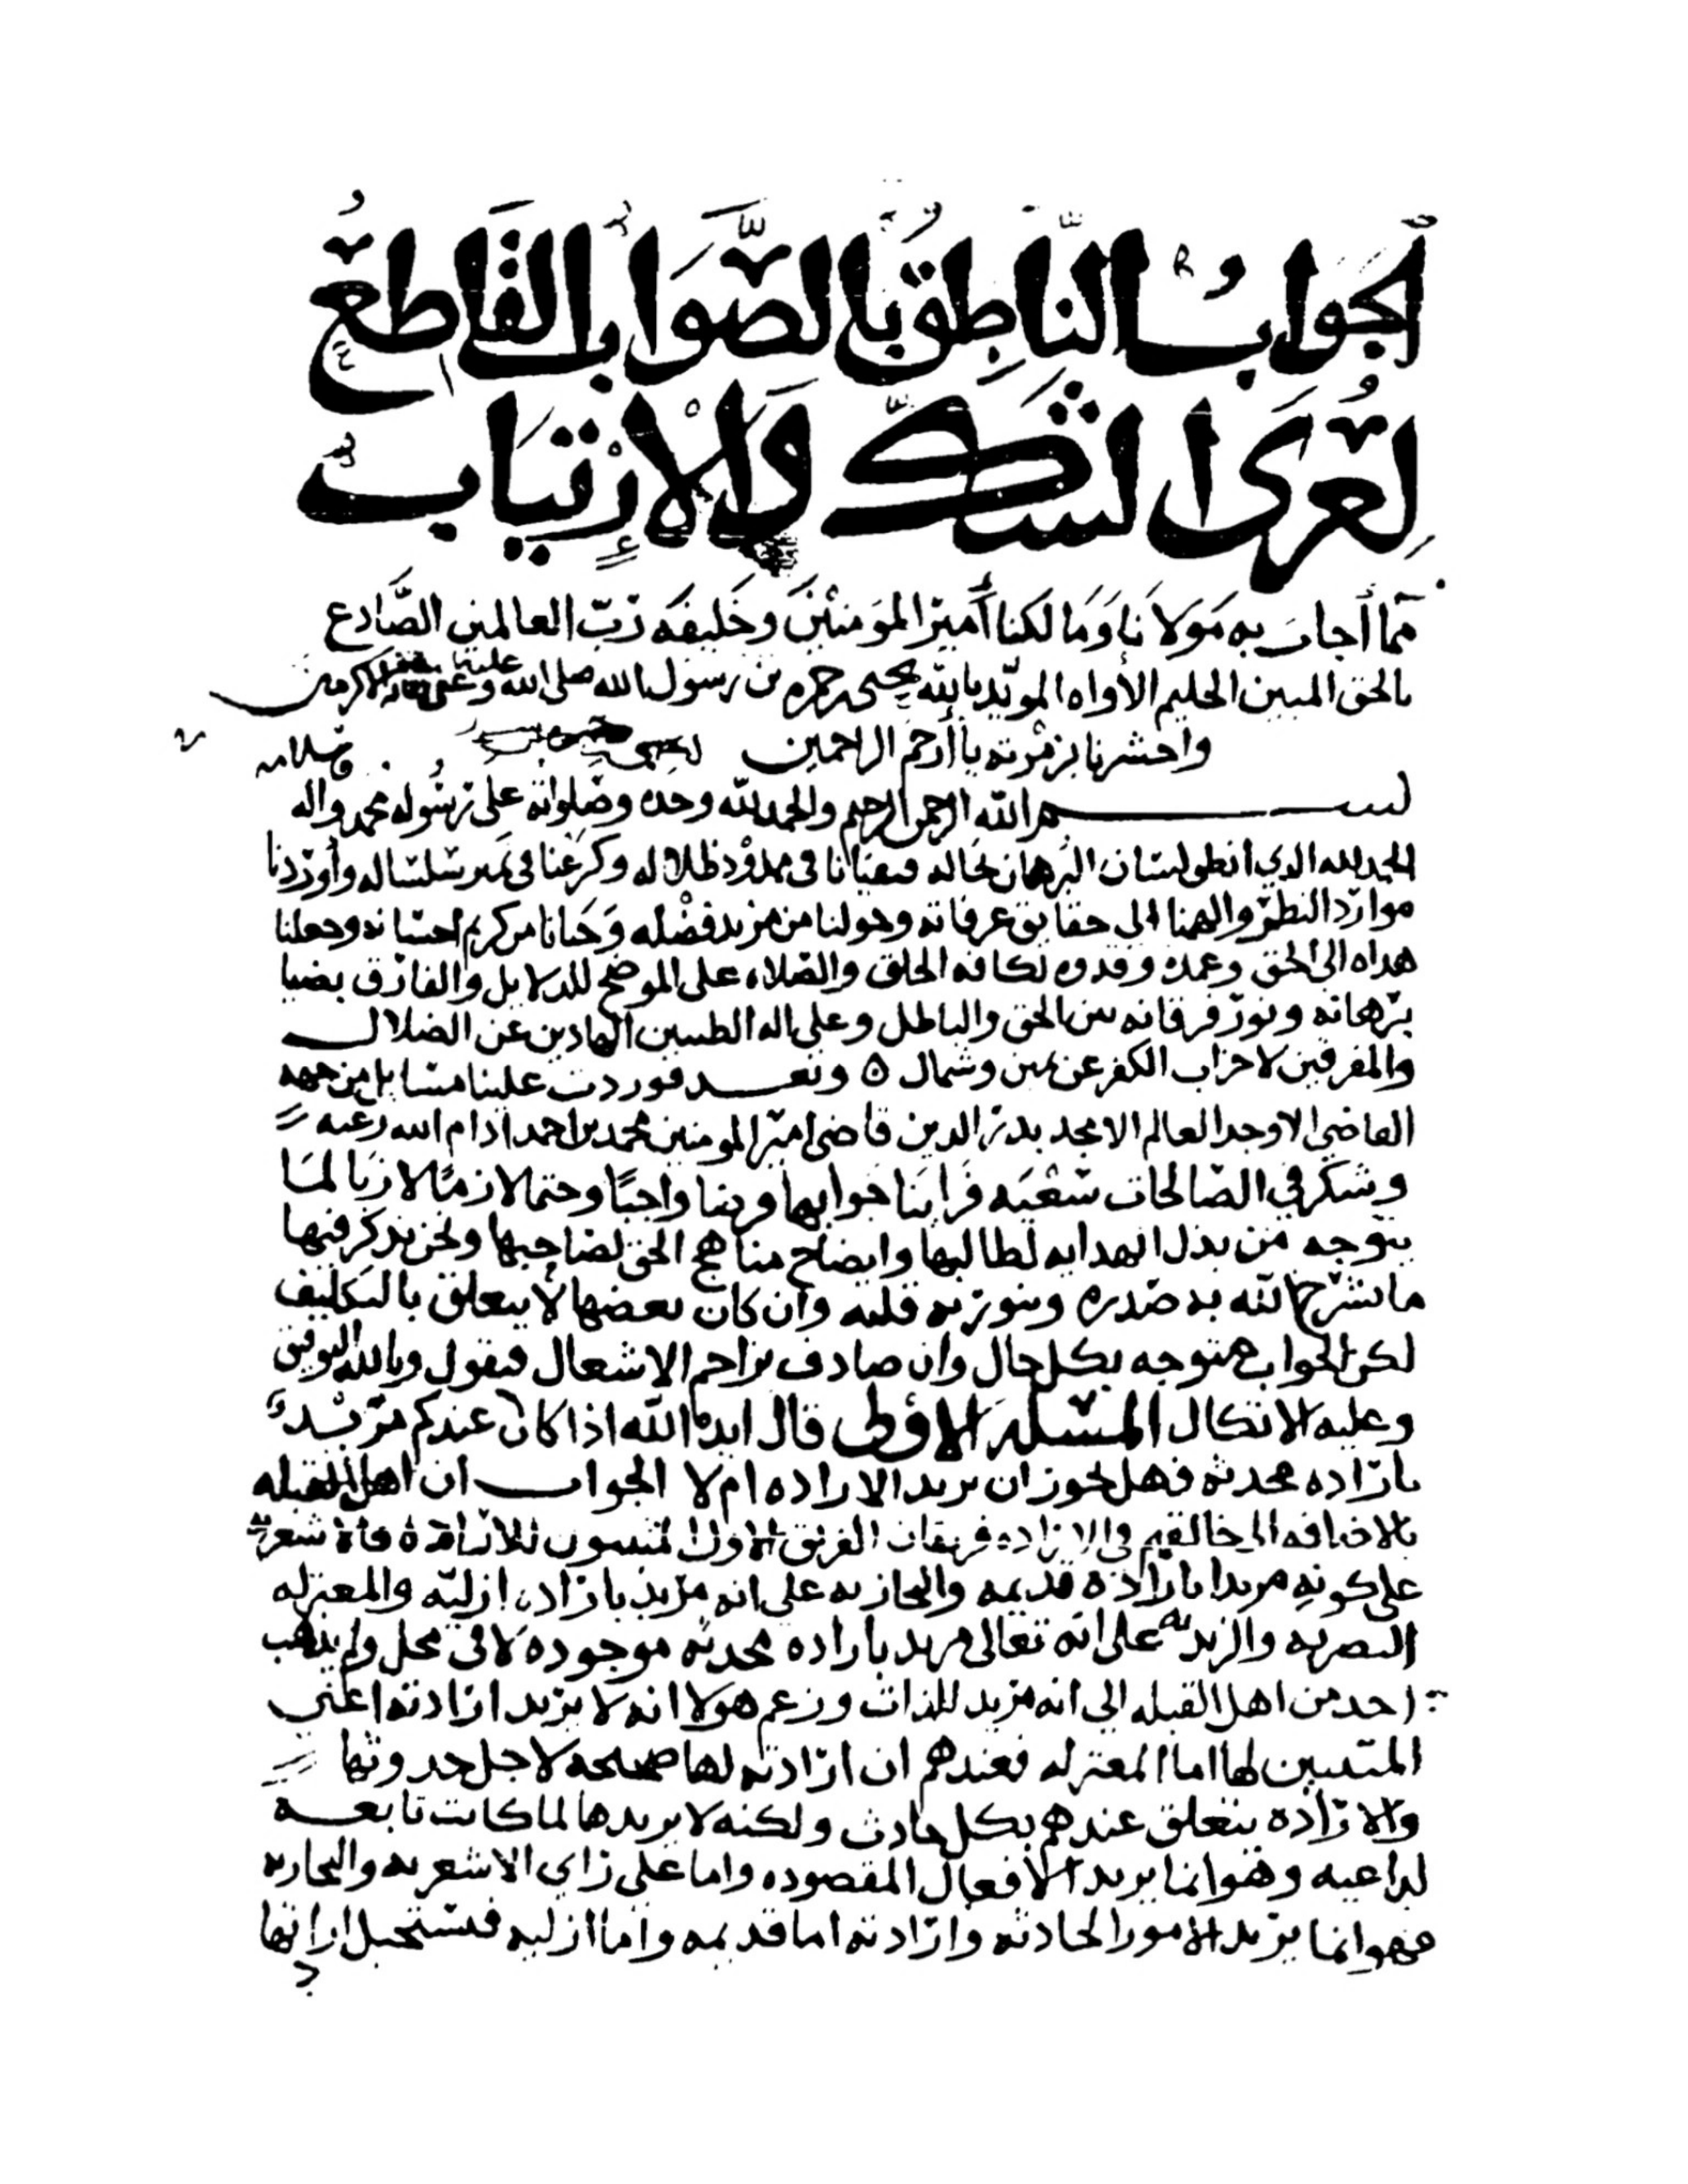 الجَوَابُ النَّاطِقُ بِالصَّوَابِ القَاطِعُ
لِعُرَى الشَّكِّ وَالإِرْتِيَابِ
ممّا أجاب به مَولاَنا وَمَالكنا أميرَ المؤمنين وخَليفة رَبّ العالمين الصَّادع
بالحق المبين الحليم الأواه المويّد بالله يحيى بن حمزه بن رسول الله صلى الله عليه وعلى اله الاكرمين
واحشرنا بزمرته يا أرحم الراحمين
بســـم الله الرحمن الرحيم والحمد لله وحده وصَلواته على رَسُوله محمد واله وسلامه
الحمد لله الذي انطق لسَان البرهان فى ممدُود ظلاله وكرعنا فى نمير سَلسَاله وأورَدنا
موارد النظر والهمنا الى حقايق عرفانه وخولنا من مزيد فضْله وَحَبانا من كريم احسَانه وجعلنا
هداه الى الحق وعمده وقدوه لكافه الخلق والصَلاه على الموضح للدلايل والفارق بضيا
برَهانه ونور فرقانه بين الحق والباطل وعلى اله الطيبين الهادين عن الضلال
والمفرقين لاحزاب الكفر عن يمين وشمال ه وبعـــد فوردت علينا مسَايل من جهه
القاضي الاوحد العالم الامجد بدر الدين قاضى امير المومنين محمد بن احمد ادام الله رعيه
وشكر في الصَالحات سَعْيَه فرَايَنا جوابها فرضا واجبًا وحتما لازمًا لازبا لمَا
يتوجه من بذل الهدايه لطالبها وايضاح مناهج الحق لصَاحبها ونحن نذكر فيها
ما يشرَح الله به صَدره وينور به قلبه وان كان بعضها لا يتعلق بالتكليف
لكن الجواب متوجه بكل حال وان صادف تزاحم الاشغال فنقول وبالله التوفيق
وعليه الاتكال المسَئله الاولى قال ايده الله اذا كان عندكم مرَيد
بارَاده محدثه فهل يجوز ان يريد الاراده ام لا الجواب ان اهل القبله
بالاضافه الى خالقهم في الارَاده فريقان الفريق الاول المثبتون للارَادة فالاشعريه
على كونه مريدا بارادة قديمه والنجاريه على انه مرَيد بارَاده ازليّه والمعتزله
البصريه والزيديه على انه تعالى مريد باراده محدثه موجوده لا فى محل ولم يذهب
احد من اهل القبله الى انه مرَيد للذات وزعم هولا انه لا يرَيد ارَادته اعني
المثبتين لها اما المعتزله فعندهم ان ارَادته لها صحيحه لاجل حدوثها
والارَاده يتعلق عندهم بكل حادث ولكنه لا يريدها لما كانت تابعـه
لداعيه وهو انما يريد الافعال المقصوده واما على رَاي الاشعريه والنجاريه
فهو انما يرَيد الامور الحادثه وارَادته اما قديمه واما ازليه فيسَتحيل ارادتها